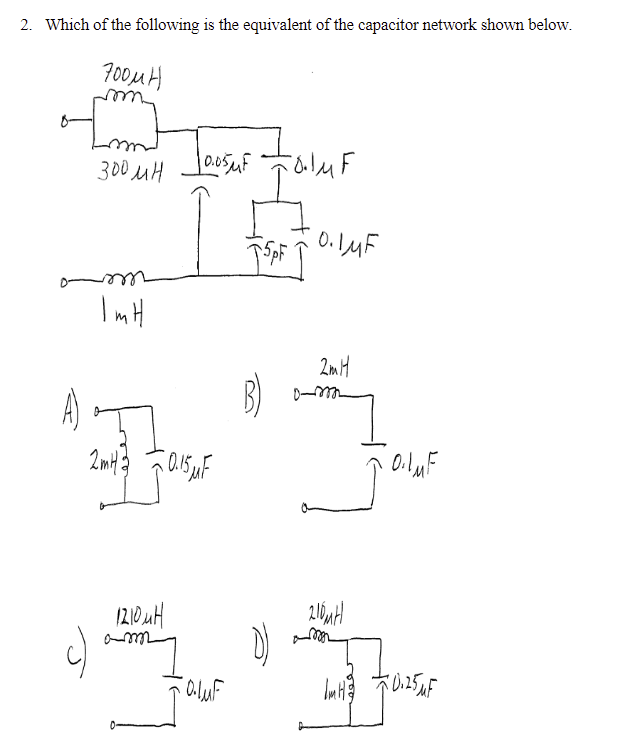 2. Which of the following is the equivalent of the capacitor network shown below.
700μH
300 μH
0.05μF
0.1μF
5pF
0.1μF
1mH
A)
2mH
0.15μF
B)
2mH
0.1μF
C)
1210μH
0.1μF
D)
210μH
1mH
0.25μF